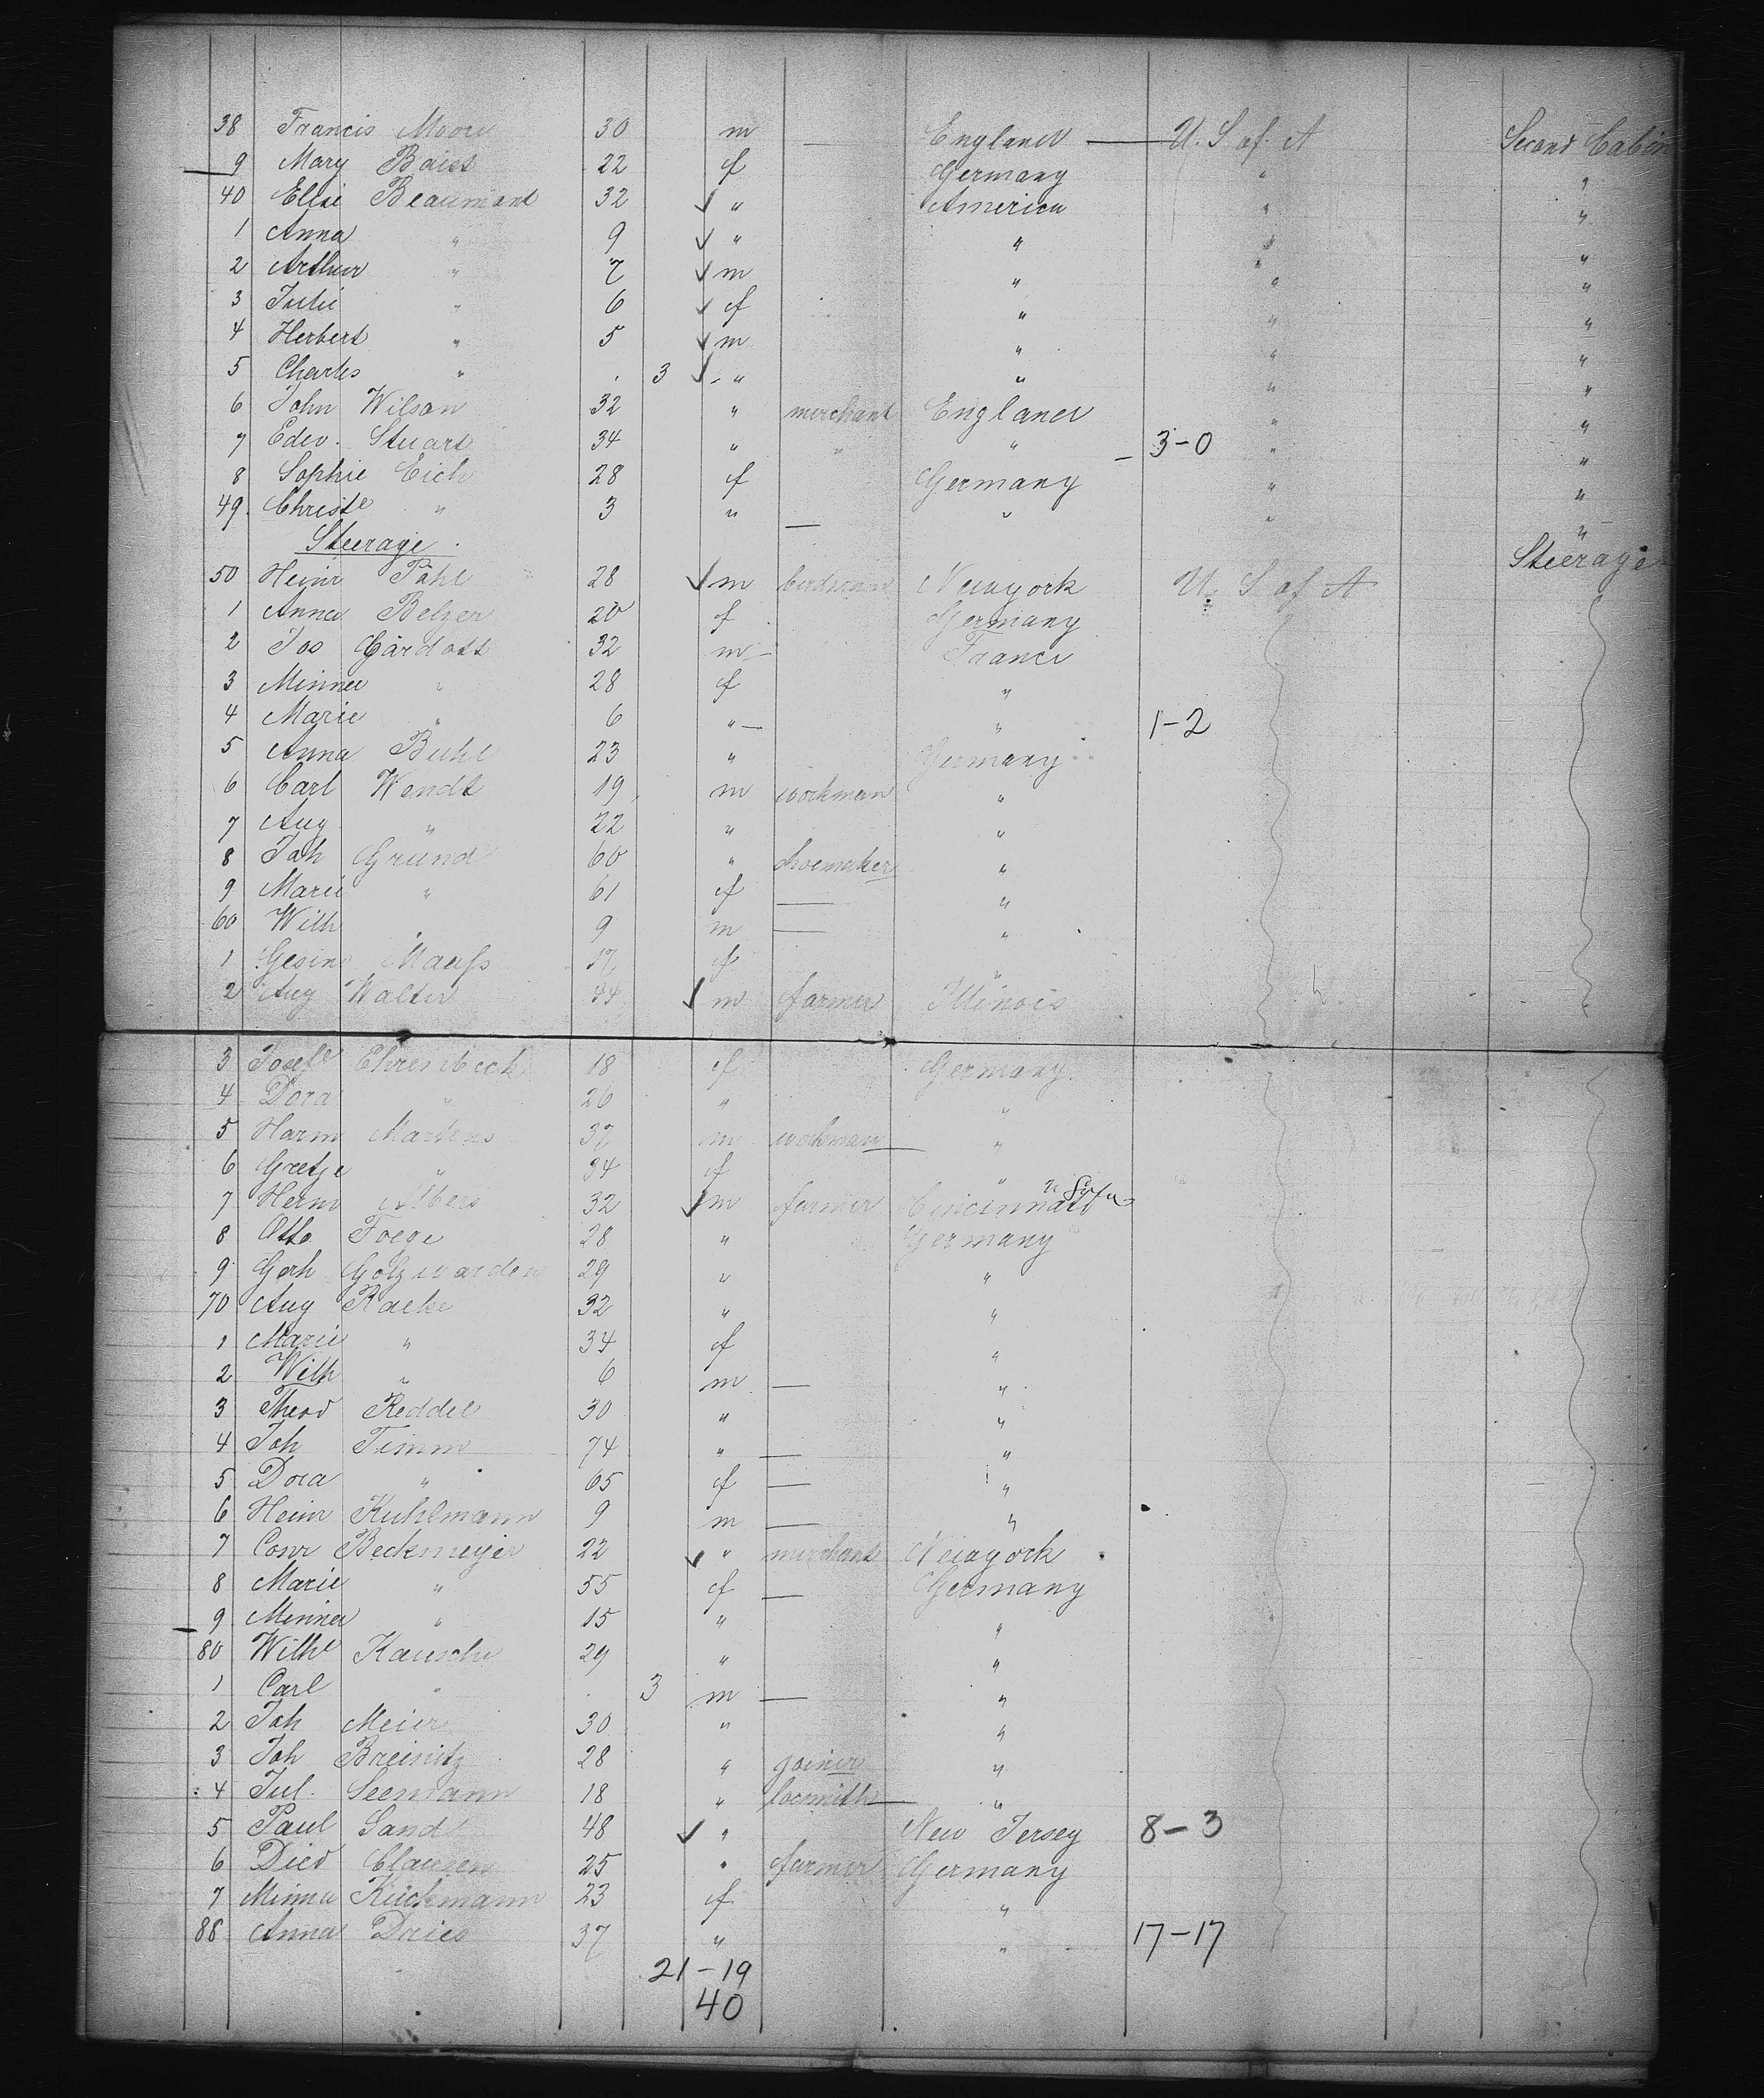 38 Francis Moore 30 m — England — U. S of A Second Cabin
9 Mary Baist 22 f Germany " "
40 Elise Beaumont 32 ✓ " America " "
1 Anna " 9 ✓ " " " "
2 Arthur " 7 ✓ m " " "
3 Julie " 6 ✓ f " " "
4 Herbert " 5 ✓ m " " "
5 Charles " . 3 ✓ " " " "
6 John Wilson 32 " merchant England " "
7 Edw. Stuart 34 " " " 3-0 " "
8 Sophie Eich 28 f Germany " "
49. Christe " 3 " — " " "
Steerage. Steerage
50 Heinr Pahl 28 ✓ m Newyork U. S of A
1 Anna Belzer 20 f Germany
2 Jos Gardott 32 m — France
3 Minna " 28 f "
4 Marie " 6 " — " 1-2
5 Anna Buhl 23 " Germany
6 Carl Wendt 19 m workman "
7 Aug " 22 " "
8 Joh Grund 60 " shoemaker "
9 Marie " 61 f — "
60 Wilh " 9 m — "
1 Gesine Maaß 17 f "
2 Aug Walter 44 ✓ m farmer Illinois
3 Josefe Ehrenbeck 18 f Germany
4 Dora " 26 " "
5 Harm Martens 37 m workman — "
6 Gretje " 34 f "
7 Herm Albers 32 ✓ m farmer Cincinnati
8 Otto Foege 28 " Germany
9 Gerh Golzwarden 29 " "
70 Aug Racke 32 " "
1 Marie " 34 f "
2 Wilh " 6 m — "
3 Theod Reddel 30 " "
4 Joh Timm 74 " — "
5 Dora " 65 f — "
6 Heinr Kuhlmann 9 m — "
7 Conr Beckmeyer 22 ✓ " merchant Newyork
8 Marie " 55 f — Germany
9 Minna " 15 " "
80 Wilhe Kausche 29 " "
1 Carl " . 3 m — "
2 Joh Meier 30 " "
3 Joh Breinitz 28 " joiner "
4 Jul. Seemann 18 " locsmith — "
5 Paul Sand 48 ✓ " New Jersey 8-3
6 Died Clausen 25 " farmer Germany
7 Minna Kückmann 23 f "
88 Anna Dries 37 " " 17-17
21-19
40